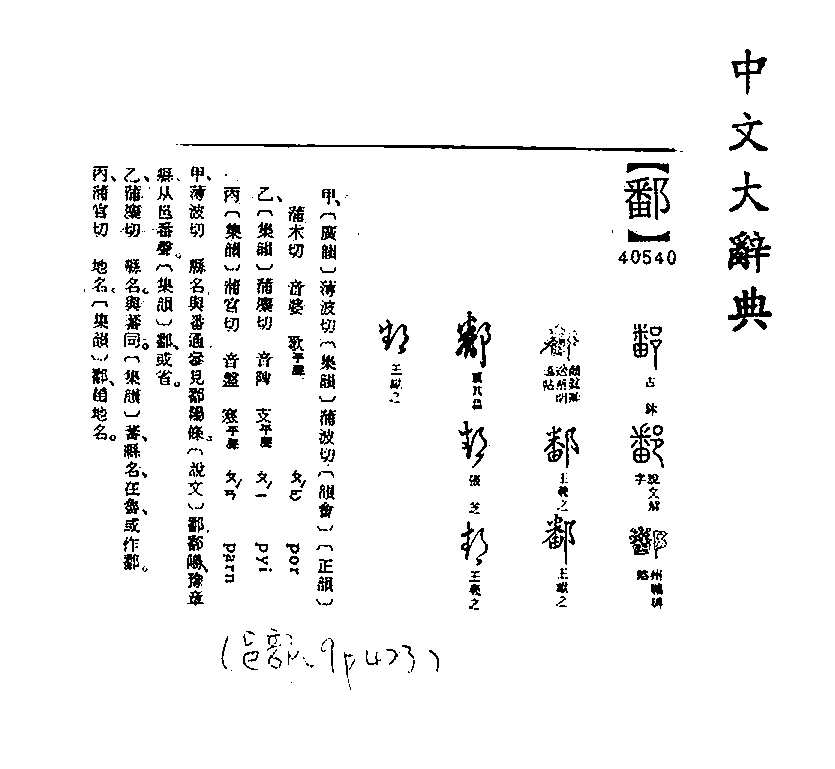 中文大辭典
【鄱】
40540
古鉥
說文解字
王羲之
王獻之
張芝
王羲之
王獻之
甲、〔廣韻〕薄波切〔集韻〕蒲波切〔韻會〕〔正韻〕
蒲禾切 音婆 歌平聲 ㄆㄛˊ por
乙、〔集韻〕蒲糜切 音陴 支平聲 ㄆㄧˊ pyi
丙、〔集韻〕蒲官切 音盤 寒平聲 ㄆㄢˊ parn
甲、薄波切 縣名與番通詳見鄱陽條〔說文〕鄱鄱陽、豫章
縣从邑番聲。〔集韻〕鄱、或省。
乙、蒲糜切 縣名與蕃同。〔集韻〕蕃、縣名、在魯、或作鄱。
丙、蒲官切 地名。〔集韻〕鄱、地名。
(邑部、9p473)